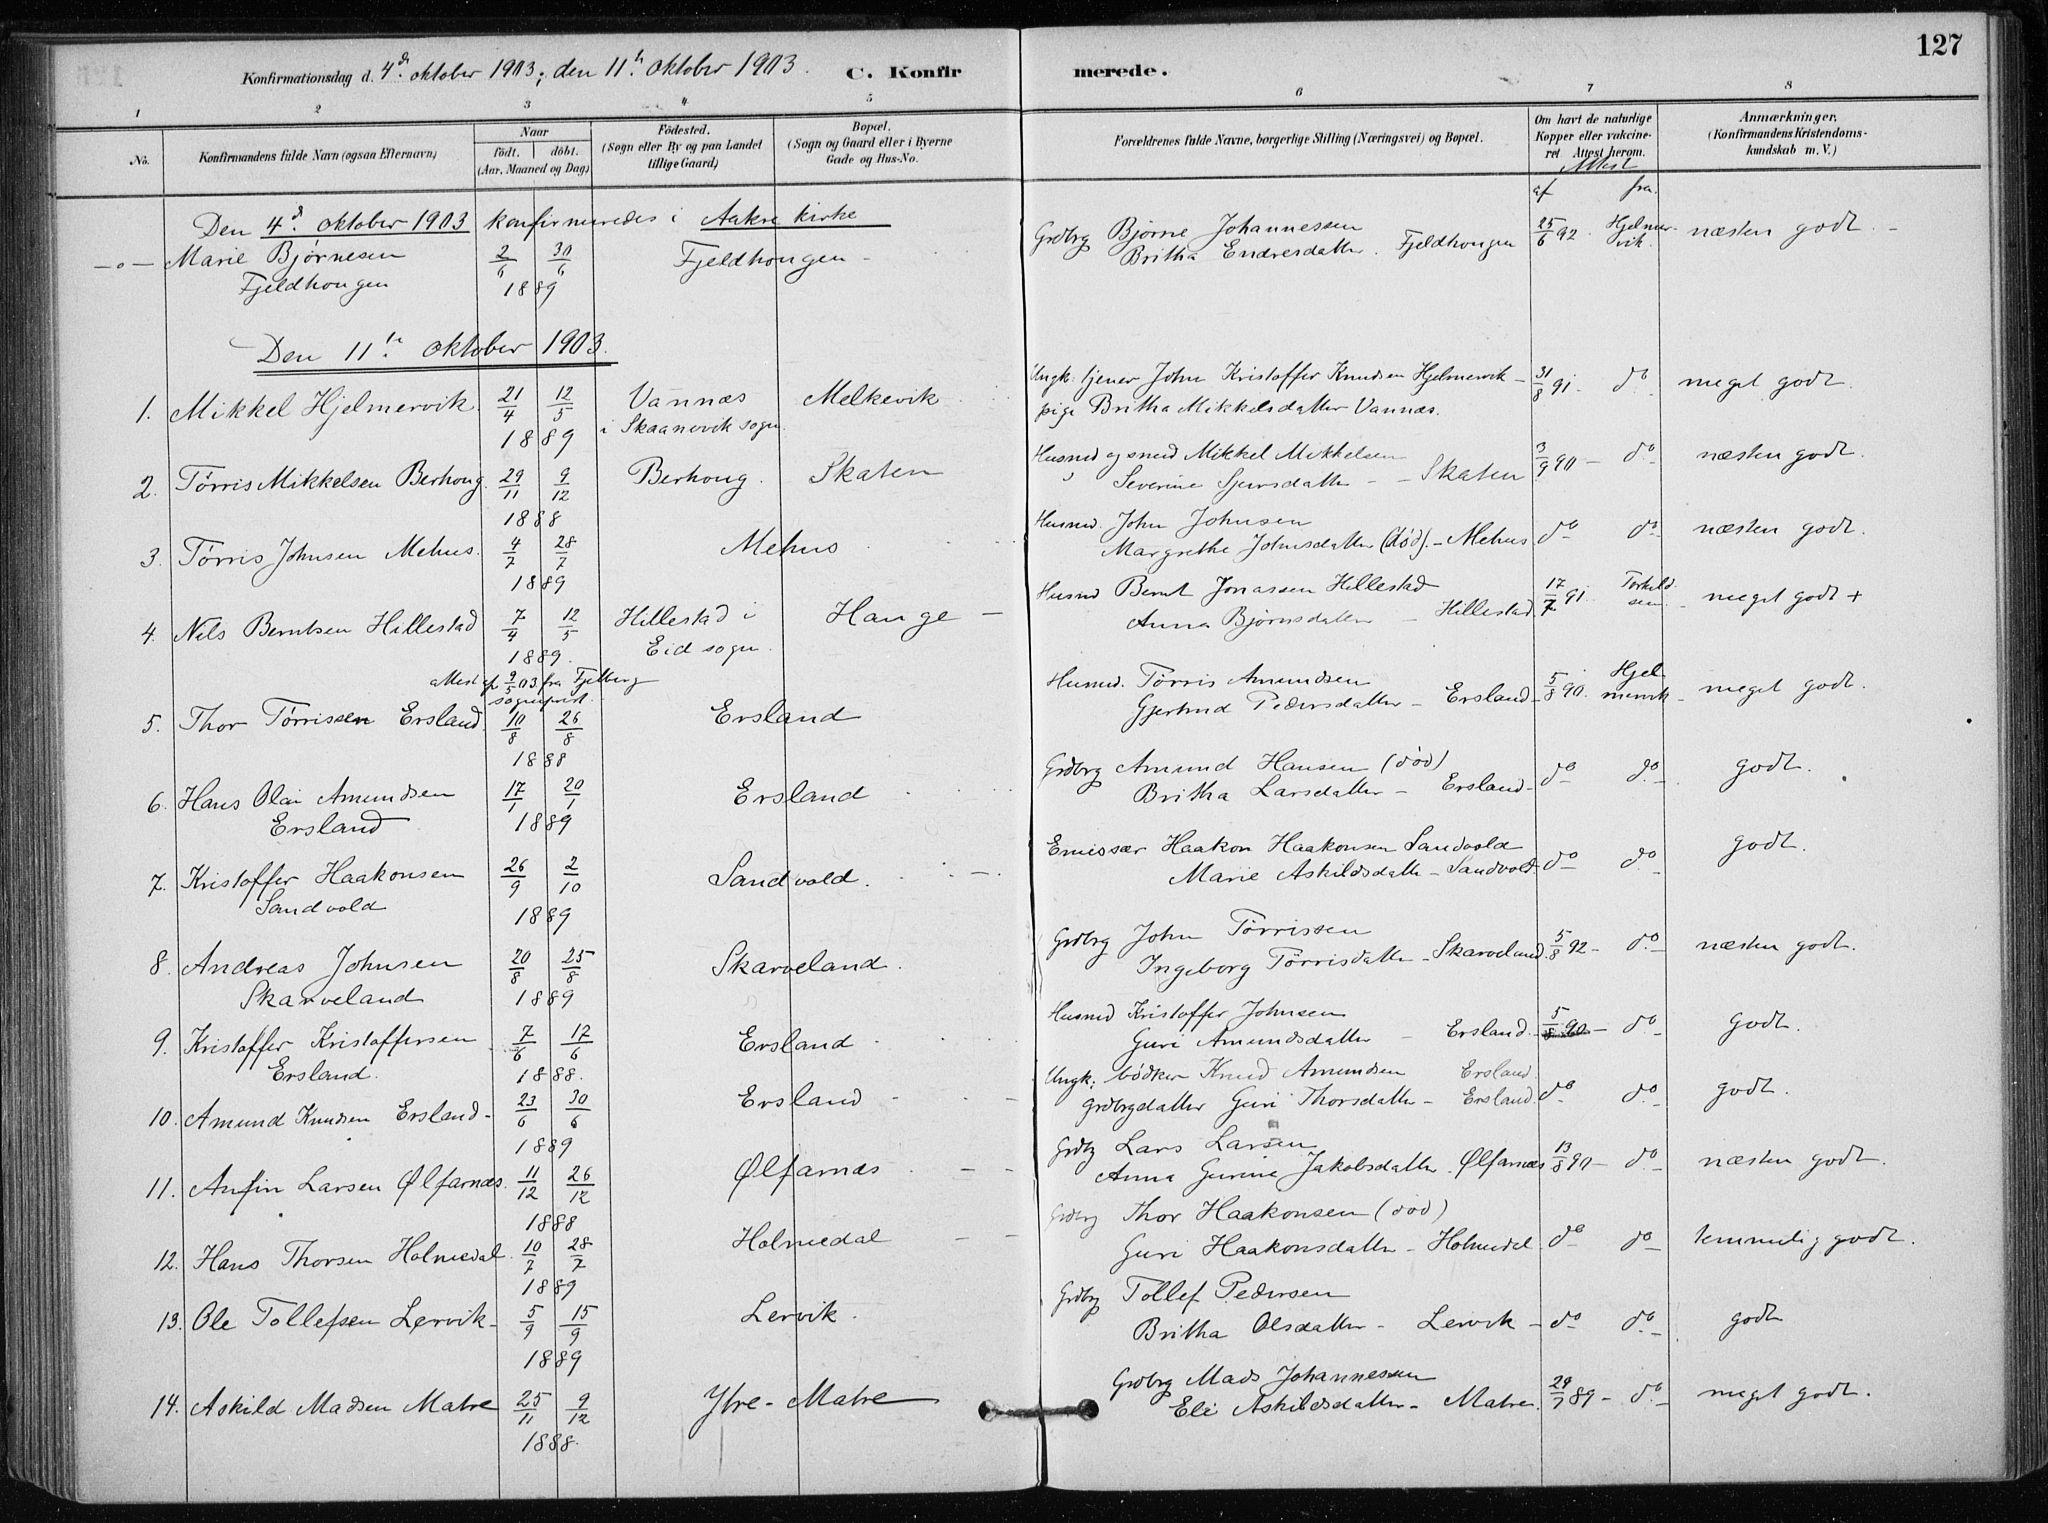 127
Konfirmationsdag d. 4d. oktober 1903; den 11te oktober 1903. C. Konfirmerede.
1 2 3 4 5 6 7 8
No.
Konfirmandens fulde Navn (ogsaa Efternavn)
Naar
födt. döbt.
(Aar, Maaned og Dag)
Födested.
(Sogn eller By og paa Landet
tillige Gaard)
Bopæl.
(Sogn og Gaard eller i Byerne
Gade og Hus-No.
Forældrenes fulde Navne, borgerlige Stilling (Næringsvei) og Bopæl.
Om havt de naturlige
Kopper eller vakcine-
ret Attest herom.
Attest
af fra
Anmærkninger.
(Konfirmandens Kristendoms-
kundskab m. V.)
Den 4d. oktober 1903 konfirmeredes i Aakre kirke
-o- Marie Bjørnesen 2/6 30/6 Fjeldhougen - Grdbrg Bjørne Johannessen 25/6 92. Hjelmer- næsten godt. -
Fjeldhougen 1889 Britha Endresdatter. Fjeldhougen vik.
Den 11te oktober 1903.
1. Mikkel Hjelmervik. 21/4 12/5 Vannæs Melkevik Ungk. tjener John Kristoffer Knudsen Hjelmervik - 31/8 91 - do meget godt.
1889 i Skaanevik sogn. pige Britha Mikkelsdatter Vannæs.
2. Tørris Mikkelsen Berhoug. 29/11 9/12 Berhoug. Skaten Husmd og smed Mikkel Mikkelsen 3/9 90 - do næsten godt.
1888 Severine Sjursdatter - Skaten
3. Tørris Johnsen Mehus. 4/7 28/7 Mehus Husmd. John Johnsen do do næsten godt.
1889 Margrethe Johnsdatter (død). - Mehus
4. Nils Berntsen Hillestad 7/4 12/5 Hillestad i Hauge - Husmd Bernt Jonassen Hillestad 17/7 91. Torkild- meget godt +
1889. Eid sogn. Anna Bjørnsdatter - Hillestad sen.
attest af 9/5 03 fra Fjelberg
sogneprest.
5. Thor Tørrissen Ersland. 10/8 26/8 Ersland Husmd. Tørris Amundsen 5/8 90. Hjel- meget godt.
1888 Gjertrud Pedersdatter - Ersland - mervik -
6. Hans Olai Amundsen 17/1 20/1 Ersland Grdbrg Amund Hansen (død) do do godt.
Ersland 1889 Britha Larsdatter - Ersland -
7. Kristoffer Haakonsen 26/9 2/10 Sandvold. Emissær Haakon Haakonsen Sandvold do do godt.
Sandvold 1889 Marie Askildsdatter - Sandvold
8. Andreas Johnsen 20/8 25/8 Skarveland. Grdbrg John Tørrissen 5/8 92 - do næsten godt.
Skarveland 1889 Ingeborg Tørrisdatter - Skarveland.
9. Kristoffer Kristoffersen 7/6 17/6 Ersland Husmd Kristoffer Johnsen 5/8 90 - do godt.
Ersland. 1888. Guri Amundsdatter - Ersland.
10. Amund Knudsen Ersland - 23/6 30/6 Ersland Ungk. bødker Knud Amundsen Ersland. do do godt.
1889 grdbrgdatter Guri Thorsdatter - Ersland.
11. Anfin Larsen Ølfarnæs. 11/12 26/12 Ølfarnæs Grdbg Lars Larsen 13/8 90 - do næsten godt.
1888 Anna Gurine Jakobsdatter. Ølfarnæs
12. Hans Thorsen Holmedal. 10/7 28/7 Holmedal Grdbrg Thor Haakonsen (død) do do temmelig godt.
1889 Guri Haakonsdatter - Holmedal
13. Ole Tollefsen Lervik - 5/9 15/9 Lervik. Grdbrg Tollef Pedersen do do godt
1889 Britha Olsdatter - Lervik -
14. Askild Madsen Matre 25/11 9/12 Ytre-Matre Grdbrg Mads Johannessen 29/7 89 - do meget godt.
1888. Eli Askildsdatter - Matre.